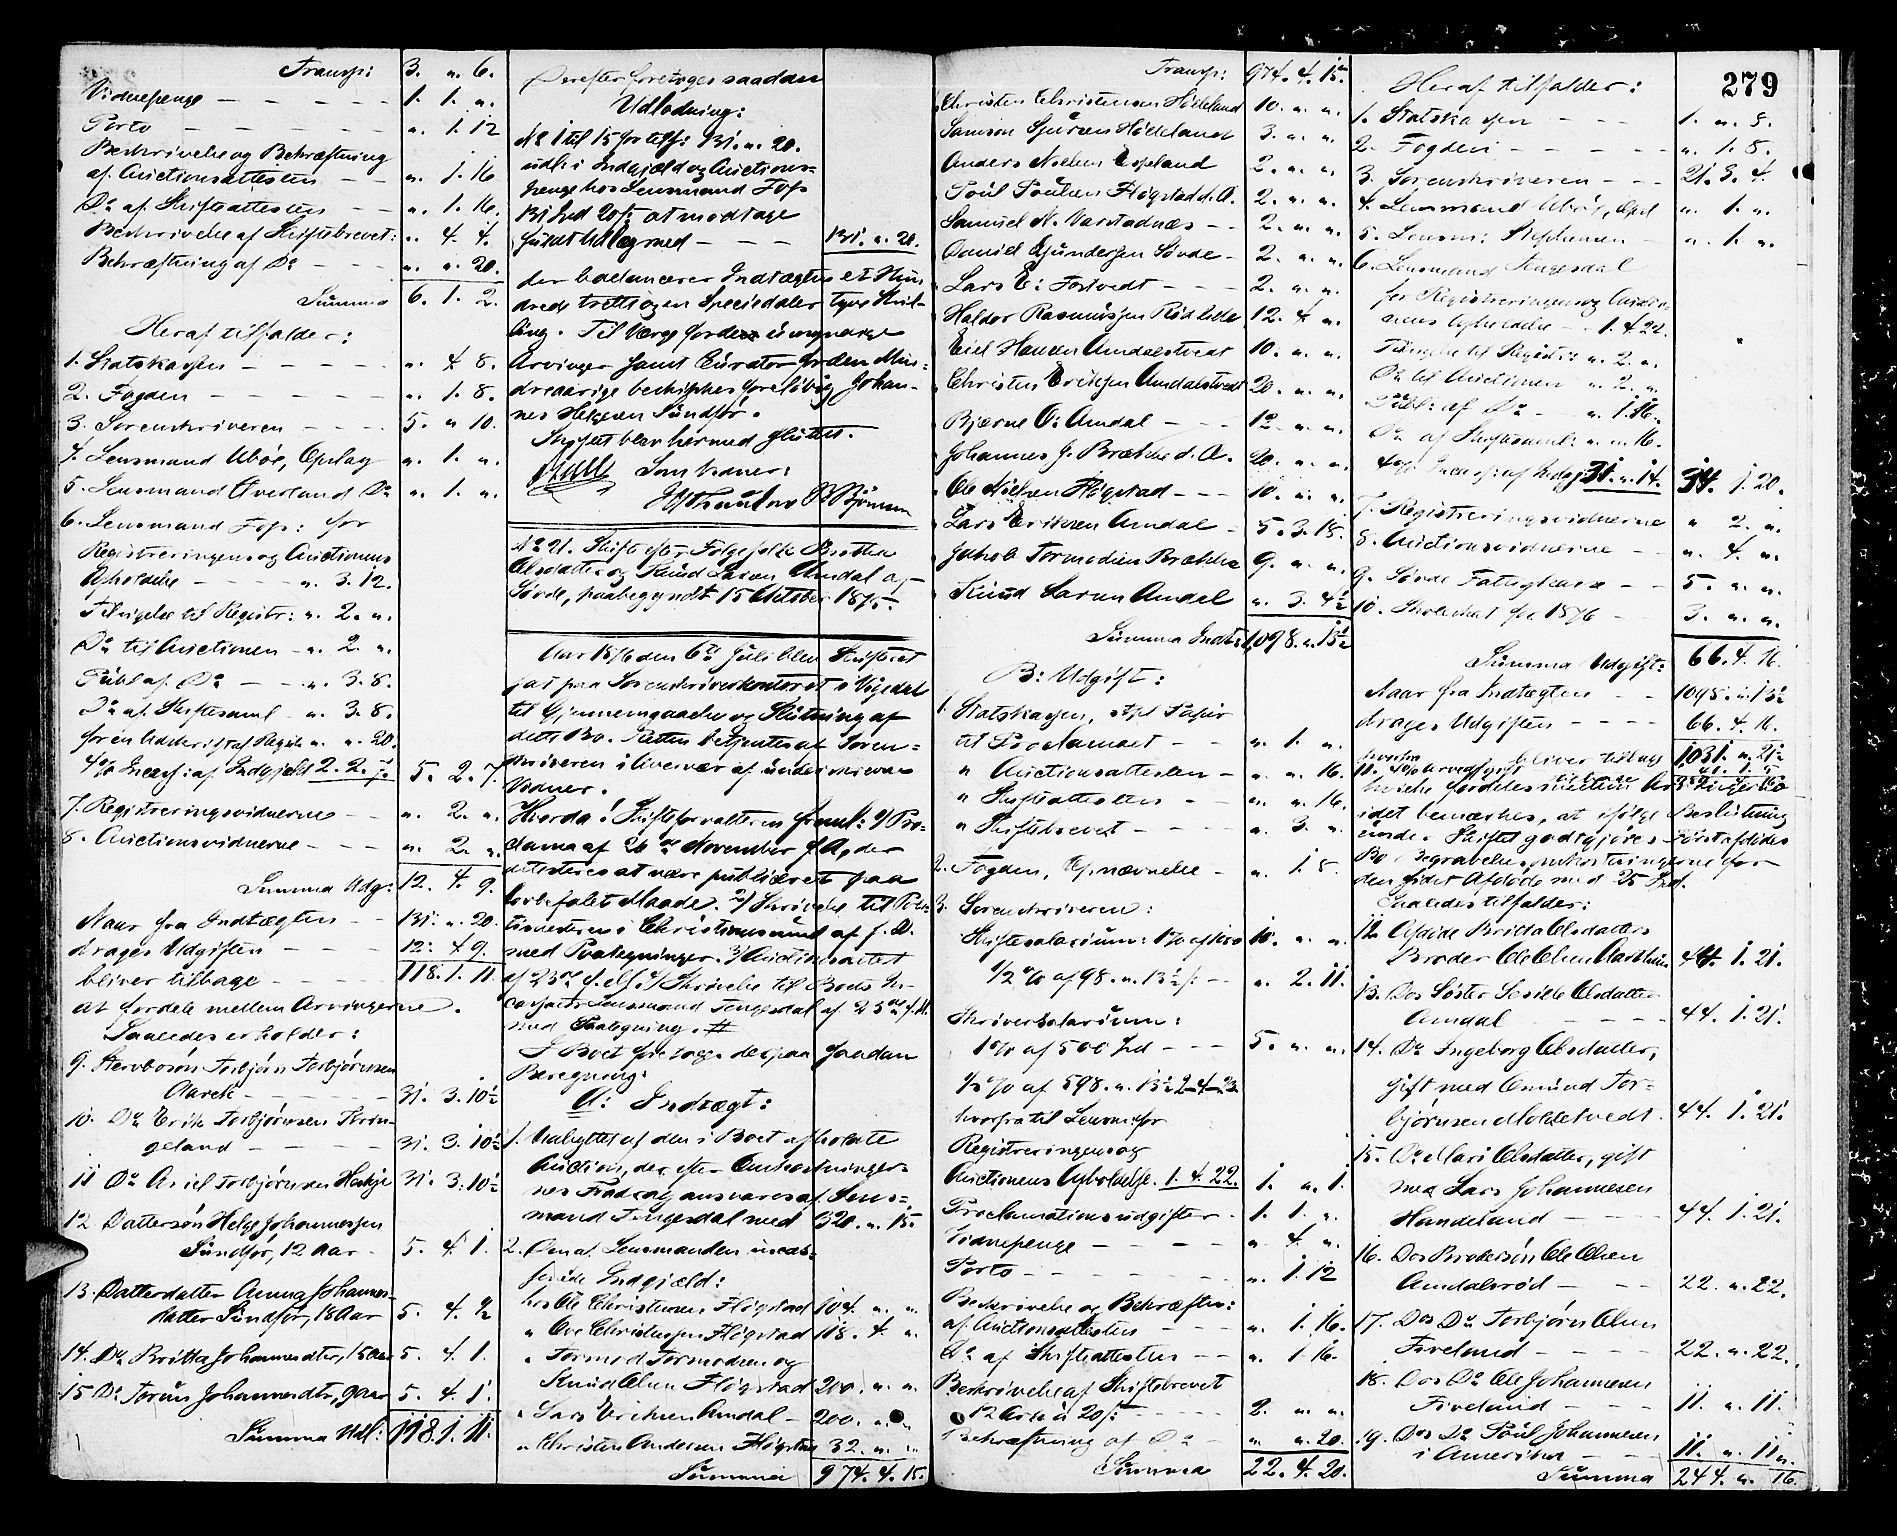 Transp: 3. „ 6.
Vidnepenge — — — — 1. 1. „
Porto — — — — — „ 1. 12
Beskrivelse og Bekræftning
af Auctionsattesten — — „ 1. 16
Do af Skifteattesten — — „ 1. 16.
Beskrivelse af Skiftebrevet: „ 4. 4.
Bekræftning af Do — — — „ „ 20.
Summa 6. 1. 2.
Heraf tilfalder:
1. Statskassen — — — — „ 4. 8.
2. Fogden — — — — — „ 1. 8.
3. Sorenskriveren — — — 5. „ 10.
4. Lensmand Ubøe, Opslag „ 1. „
5. Lensmand Øverland Do „ 1. „
6. Lensmand Fos: for
Registreringens og Auctionens
Afholdelse — — — „ 3. 12.
Tilsigelse til Registr: „ 2. „
Do til Auctionen — „ 2. „
Publ af Do — — „ 3. 8.
Do af Skiftesaml — „ 3. 8.
for en Udskrift af Registr „ „ 20.
4% Incass: af Indgjæld 2. 2. 7. 5. 2. 7.
7. Registreringsvidnerne — — „ 2. „
8. Auctionsvidnerne — — — „ 2. „
Summa Udg: 12. 4. 9.
Naar fra Indtægten — — 131. „ 20.
drages Udgiften — — — 12. 4 9.
bliver tilbage — — — — 118. 1. 11.
at fordele mellem Arvingerne.
Saaledes erholder:
9. Stervbosøn Torbjørn Torbjørnsen
Aarek — — — — — 31. 3. 10½
10. Do Erik Torbjørnsen
geland — — — — 31. 3. 10½
11 Do Ariel Torbjørnsen 31. 3. 10½
12 Dattersøn Helge Johannessen
Sundfør, 12 Aar — 5. 4. 1.
13. Datterdatter Anna Johannes-
datter Sundfør, 18 Aar 5. 4. ½
14. Do Britta Johannesdtr, 15 Aar 5. 4. 1.
15 Do Torun Johannesdtr, 9 Aar 5. 4. 1.
Summa Udl: 118. 1. 11.
Derefter foretages saadan
Udlodning:
No 1 til 15 for tilsf: 131. „ 20.
udl: i Indgjæld og Auctions-
penge hos Lensmand Fos
131 Spd 20 s at modtage
fuldt Udlæg med — — — 131. „ 20.
der balancerer Indtægten et Hun-
drede trette og en Speciedaler tyve Skil-
ling. Til Værge for de umyndige
Arvinger samt Curator for den Min-
dreaarige beskikkes foreløbig Johan-
nes Helgesen Sundfør.
Skiftet blev hermed sluttet.
Som Vidner:
No 21. Skifte efter Folgefolk Brotha
Olsdatter og Knud Larsen Amdal af
Søvde, paabegyndt 15 Oktober 1875.
Aar 1876 den 6te Juli blev Skifteret
sat paa Sorenskriverkontoret i Vigedal
til Gjennemgaaelse og Slutning af
dette Bo. Retten betjentes af Soren-
skriveren i Overvær af underskrevne
Vidner.
Hvorda! Skifteforvalteren freml: 1/ Pro-
clama af 26de November f. A., der
attesteres at være publiceret paa
lovbefalet Maade. 2/ Skrivelse til Poli-
timesteren i Christianssund af f. D.
med Paategninger. 3/ Auctionsattest
af 23de d. A. 4/ Skrivelse til Boets In-
cassator Lensmand Tengesdal af 25de f. M.
med Paategning.
I Boet foretages derpaa saadan
Beregning:
A: Indtægt:
1. Udbyttet af den i Boet afholdte
Auction, der efter Omkostninger-
nes Fradrag ansvares af Lens-
mand Tengesdal med 320. „ 15.
2. Den af Lensmanden incas-
serede Indgjæld:
hos Ole Christensen Fløgstad 104. „ „
„ Ove Christensen Fløgstad 118. 4. „
„ Tormod Tormodsen og
Knud Olsen Fløgstad 200. „ „
„ Lars Eriksen Amdal — 200. „ „
„ Christen Andersen Fløgstad 32. „ „
Summa 974. 4. 15.
279
Transp: 974. 4. 15.
Christen Christensen Hødeland 10. „ „
Samson Sjursen Hødeland 3. „ „
Anders Nielsen Espeland 2. „ „
Poul Poulsen Fløgstad d. A. 2. „ „
Samuel N. Vastadnæs — — 2. „ „
Daniel Gundersen Søvde — 2. „ „
Lars E: Fostvedt — — — 2. „ „
Haldor Rasmussen 12. 4. „
Eiel Hansen Amdalstvedt 10. „ „
Christen Eriksen Amdalstvedt 20. „ „
Bjærne O: Amdal — — — 12. „ „
Johannes J. Brække d. A. 20. „ „
Ole Nielsen Fløgstad — — — 10. „ „
Lars Eriksen Amdal — 5. 3. 18.
Jakob Tormodsen Brække 9. „ „
Knud Larsen Amdal „ 3. 4½
Summa Indt: 1,098. „ 13½
B: Udgift:
1. Statskassen, stpl Papir
til Proclamaet — — „ 1. „
„ Auctionsattesten — „ „ 16.
„ Skifteattesten — — „ „ 16.
„ Skiftebrevet — — „ 3. „
2. Fogden, Opnævnelse — „ 1. 8.
3. Sorenskriveren:
Skiftesalarium: 1% af 1000 10. „ „
½% af 98. „ 13½ s: — „ 2. 11.
Skriversalarium:
1% af 500 Spd — — — 5. „ „
½% af 598. „ 13½ 2. 4. 23.
hvorfra til Lensm: for
Registreringens og
Auctionens Afholdelse. 1. 4. 22. 1. „ 1.
Proclamationsudgifter — 1. 1. „
Vidnepenge — — — — „ 4. „
Porto — — — — — „ 1. 12
Beskrivelse og Bekræftn:
af Auctionsattesten — — — „ 1. 16.
Do af Skifteattesten — — „ 1. 16.
Beskrivelse af Skiftebrevet
12 Ark à 20 s: — — — — 2. „ „
Bekræftning af Do — „ „ 20.
Summa 22. 4. 20.
Heraf tilfalder:
1. Statskassen — — — 1. „ 8.
2. Fogden — — — — — „ 1. 8.
3. Sorenskriveren — — — 21. 3. 4.
4. Lensmand Ubøe, Opsl „ 1. „
5. Lensm: Stephansen — „ 1. „
6. Lensmand Tengesdal
for Registreringens og Auctio-
nens Afholdelse — 1. 4. 22.
Tilsigelse til Registr: „ 2. „
Do til Auctionen „ 2. „
Publ: af Do — „ 1. 16.
Do af Skiftesaml: „ „ 16.
4% Incass: af Indgj 31. „ 14. 34. 1. 20.
7. Registreringsvidnerne „ 2. „
8. Auctionsvidnerne — — „ 4. „
9. Søvde Fattigkasse — — 5. „ „
10. Skoleskat for 1876 — — 3. „ „
Summa Udgift: 66. 4. 16.
Naar fra Indtægten — — 1098. „ 13½
drages Udgiften — — — — 66. 4. 16.
bliver tilbage 1031. „ 21½
11. 4% Arveafgift 41. 1. „
hvilke fordeles mellem Arvingerne
idet bemærkes, at ifølge Beslutning
under Skiftet godtgjøres Førstafdødes
Bo Begravelsesomkostningerne for
den sidst Afdøde med 25 Spd.
Saaledes tilfalder:
12. Afdøde Britta Olsdatters
Broder Ole Olsen Aarthun 44. 1. 21.
13. Des Søster Sesiele Olsdatter
Amdal — — — — 44. 1. 21.
14. Do Ingeborg Olsdatter,
gift med Omund Tor-
bjørnsen Molletvedt. 44. 1. 21.
15. Do Mari Olsdatter, gift
med Lars Johannesen
Handeland — — — 44. 1. 21.
16. Des Brodersøn Ole Olsen
Amdalsrød — — — 22. „ 22.
17. Des Do Torbjørn Olsen
Fiveland — — — — 22. „ 22.
18. Des Do Ole Johannesen
Fiveland — — — — 11. „ 11.
19. Des Do Poul Johannesen
i Amerika — — — 11. „ 11.
Summa 244. „ 16.